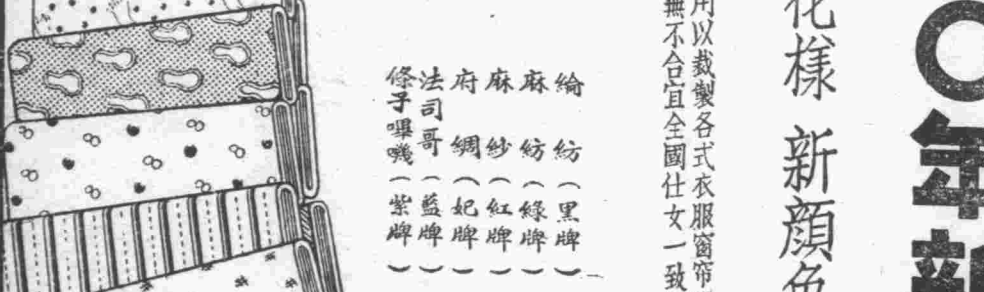 〇年新
花樣 新顏色
用以裁製各式衣服窗帘
無不合宜全國仕女一致
綸紡（黑牌）
麻紡（綠牌）
麻紗（紅牌）
府綢（妃牌）
法司哥（藍牌）
條子嗶嘰（紫牌）